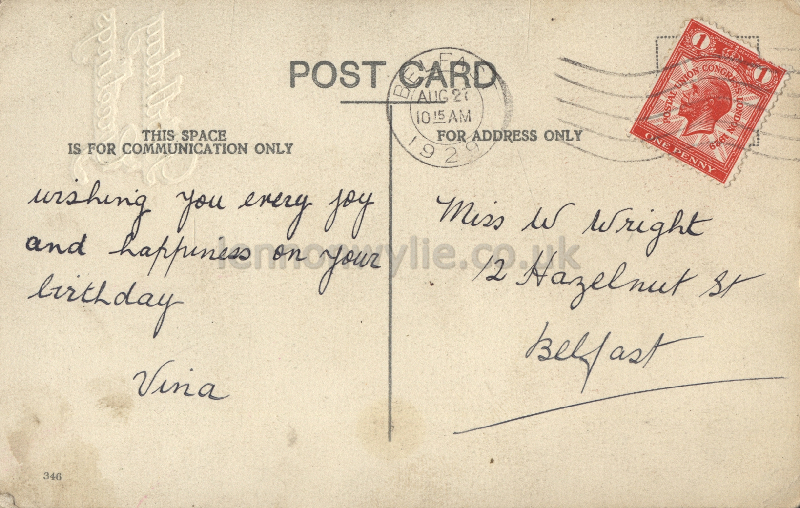 POST CARD
BELFAST
AUG 27
10 15 AM
1929
1 1
POSTAL UNION CONGRESS LONDON 1929
ONE PENNY
THIS SPACE
IS FOR COMMUNICATION ONLY
FOR ADDRESS ONLY
wishing you every joy
and happiness on your
birthday
Vina
Miss W Wright
12 Hazelnut St
Belfast
lennonwylie.co.uk
346